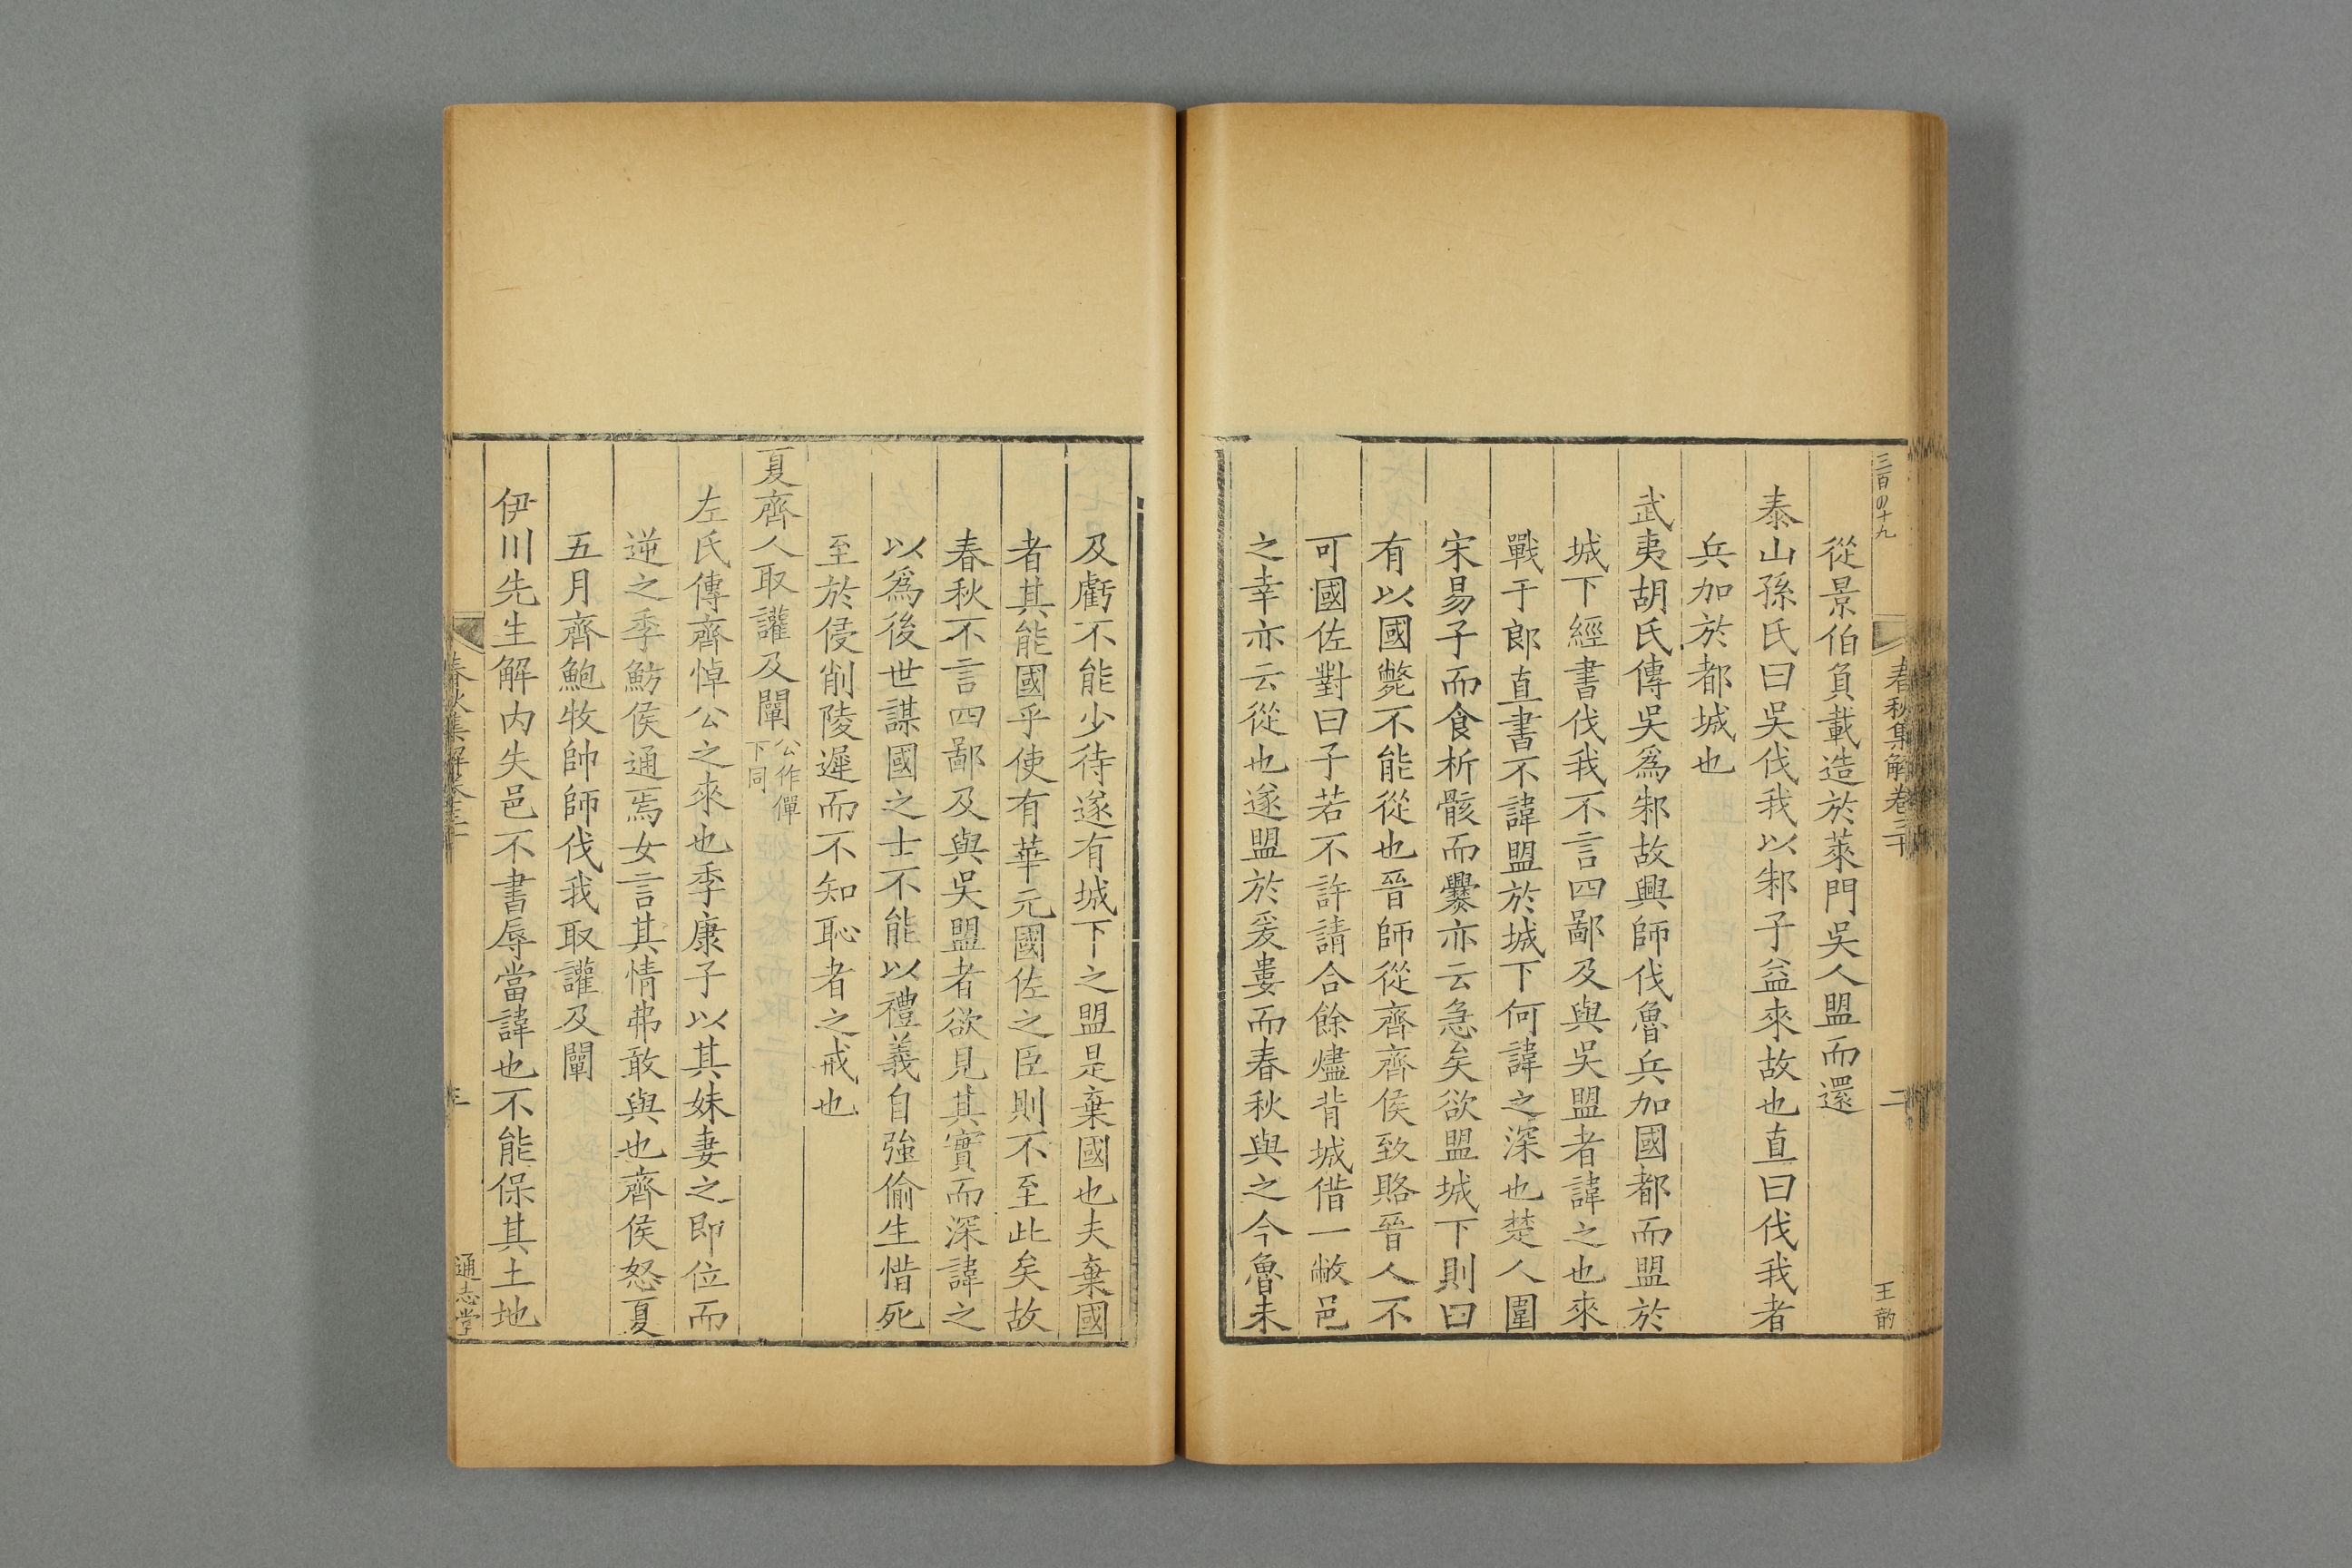 三百四十九
春秋集解卷三十
二
王勖
從景伯負載造於萊門吳人盟而還
泰山孫氏曰吳伐我以邾子益來故也直曰伐我者
兵加於都城也
武夷胡氏傳吳爲邾故興師伐魯兵加國都而盟於
城下經書伐我不言四鄙及與吳盟者諱之也來
戰于郎直書不諱盟於城下何諱之深也楚人圍
宋易子而食析骸而爨亦云急矣欲盟城下則曰
有以國斃不能從也晉師從齊齊侯致賂晉人不
可國佐對曰子若不許請合餘燼背城借一敝邑
之幸亦云從也遂盟於爰婁而春秋與之今魯未
及虧不能少待遂有城下之盟是棄國也夫棄國
者其能國乎使有華元國佐之臣則不至此矣故
春秋不言四鄙及與吳盟者欲見其實而深諱之
以爲後世謀國之士不能以禮義自強偷生惜死
至於侵削陵遲而不知恥者之戒也
夏齊人取讙及闡公作僤下同
左氏傳齊悼公之來也季康子以其妹妻之即位而
逆之季魴侯通焉女言其情弗敢與也齊侯怒夏
五月齊鮑牧帥師伐我取讙及闡
伊川先生解內失邑不書辱當諱也不能保其土地
春秋集解卷三十
三
通志堂